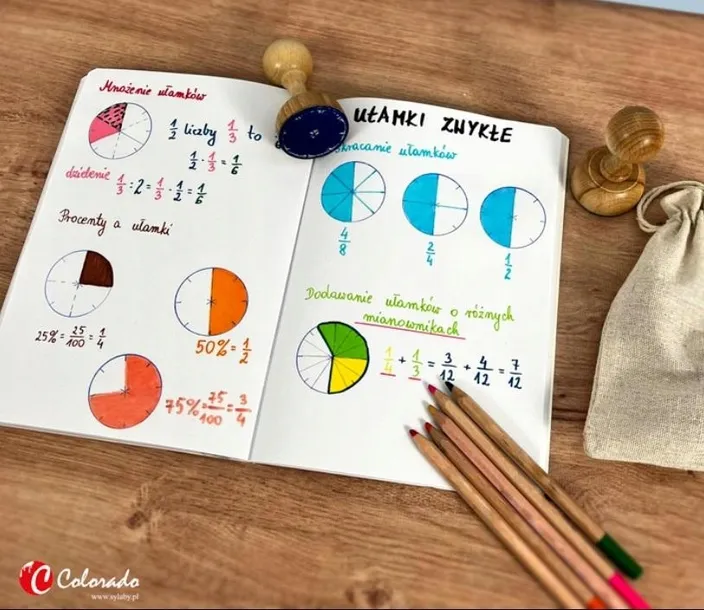 Mnożenie ułamków
1/2 liczby 1/3 to
1/2 · 1/3 = 1/6
dzielenie 1/3 : 2 = 1/3 · 1/2 = 1/6
Procenty a ułamki
25% = 25/100 = 1/4
50% = 1/2
75% = 75/100 = 3/4
UŁAMKI ZWYKŁE
skracanie ułamków
4/8
2/4
1/2
Dodawanie ułamków o różnych
mianownikach
1/4 + 1/3 = 3/12 + 4/12 = 7/12
Colorado
www.sylaby.pl